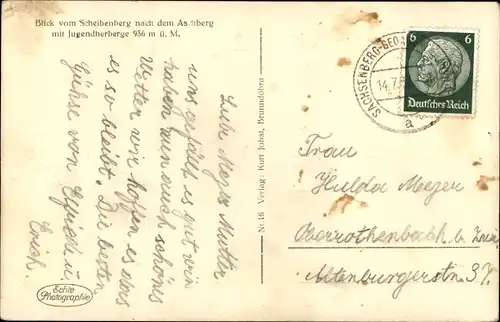 Blick vom Scheibenberg nach dem Aschberg
mit Jugendherberge 936 m ü. M.
Liebe Meyer Mutter
uns gefällt es gut wir
haben nun auch schönes
Wetter wir hoffen es das
es so bleibt. Die besten
Grüße von Elfriede u.
Erich.
Echte
Photographie
Nr. 16 Verlag: Kurt Jobst, Brunndöbra
SACHSENBERG-GEO
14.7.
a
6 6
Deutsches Reich
Frau
Hulda Meyer
Oberrothenbach b. Zwi
Altenburgerstr. 37.